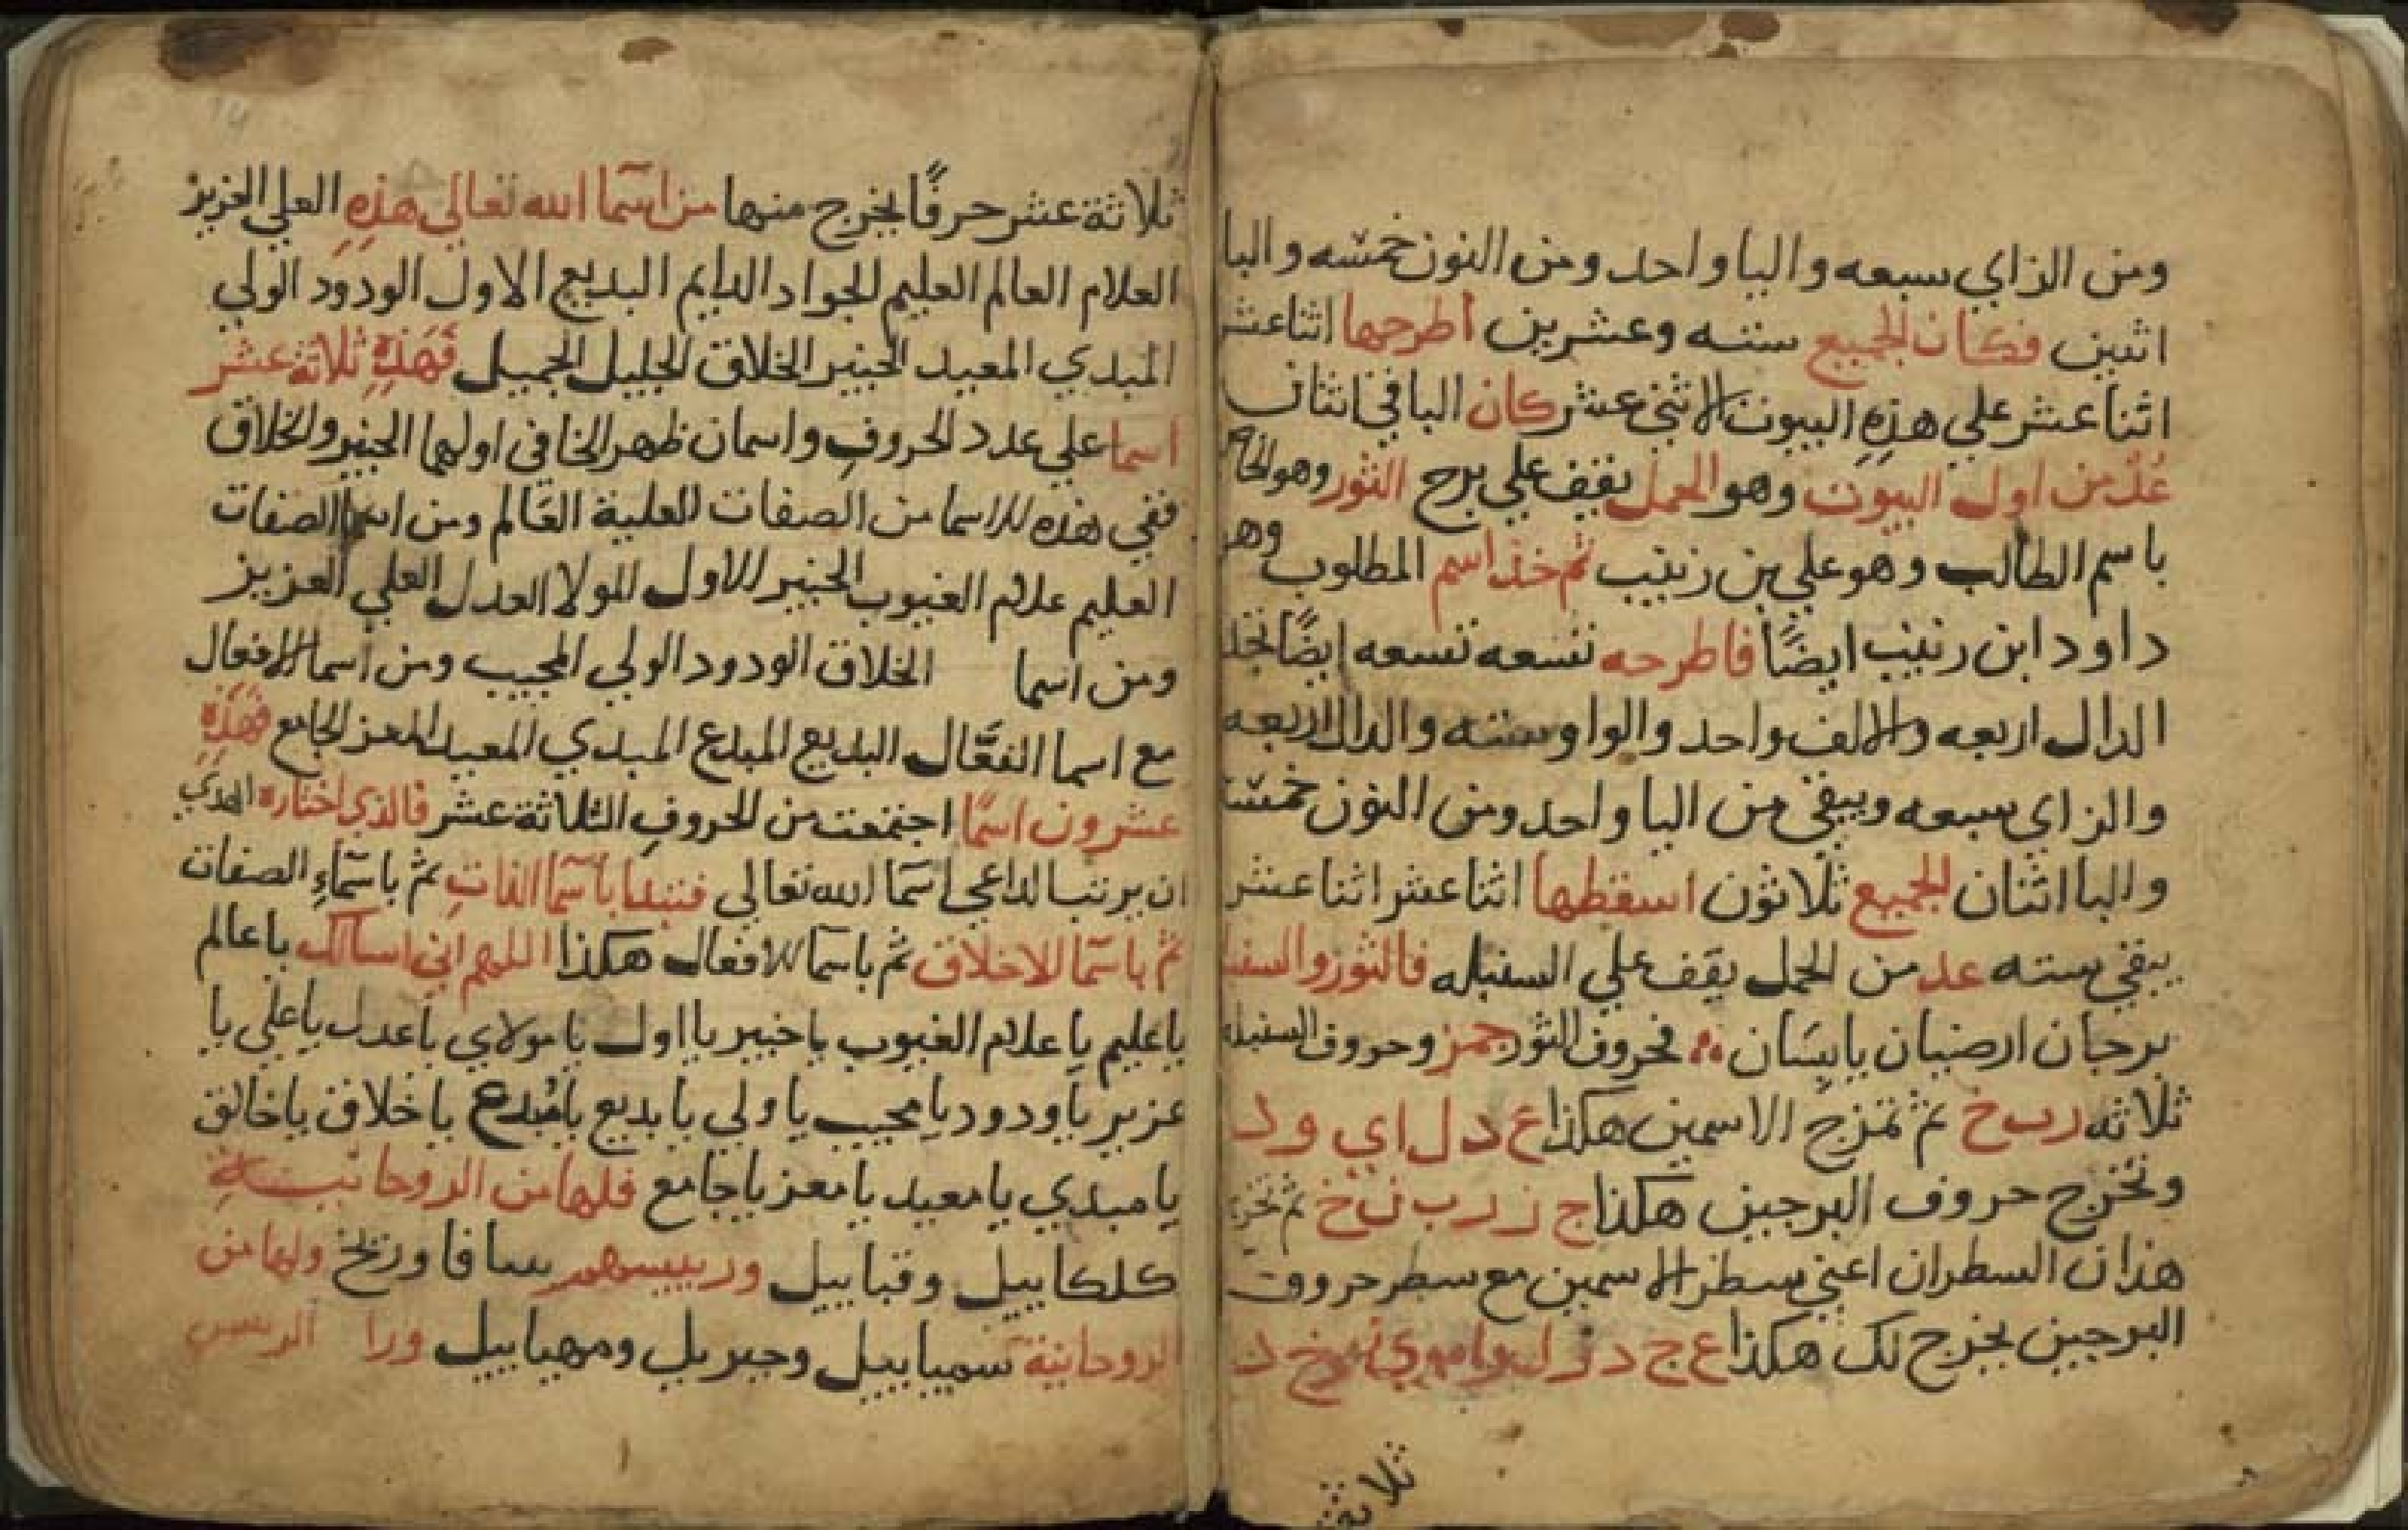 ومن الزاي سبعه والبا واحد ومن النون خمسه والبا
اثنين فكان الجميع سته وعشرين اطرحها اثناعشر
اثناعشر علي هذه البيوت الاثني عشر كان الباقي اثنان
عد من اول البيوت وهو الحمل يقف علي برج الثور وهو الخاص
باسم الطالب وهو علي بن زينب ثم خذ اسم المطلوب وهو
داود ابن زينب ايضًا فاطرحه تسعه تسعه ايضًا تجد
الدال اربعه والالف واحد والواو سته والدال اربعه
والزاي سبعه ويبقي من اليا واحد ومن النون خمسه
والبا اثنان الجميع ثلاثون اسقطها اثناعشر اثناعشر
يبقي سته عد من الحمل يقف علي السنبله فالثور والسنبله
برجان ارضيان يابسان فحروف الثور جمز وحروف السنبله
ثلاثه رب خ ثم تمزج الاسمين هكذا ع د ل ا ي و د
وتخرج حروف البرجين هكذا ج ز ر ب ن خ ثم تخرج
هذان السطران اعني سطر الاسمين مع سطر حروف
البرجين يخرج لك هكذا ع ج د ز ل
ثلاثة
ثلاثة عشر حرفًا يخرج منها من اسما الله تعالي هذه العلي العزيز
العلام العالم العليم الجواد الدايم البديع الاول الودود الولي
المبدي المعيد الخبير الخلاق الجليل الجميل فهذه ثلاثة عشر
اسما علي عدد الحروف واسمان ظهر الخافي اولهما الخبير والخلاق
ففي هذه الاسما من الصفات العلية العالم ومن اسما الصفات
العليم علام الغيوب الخبير الاول المولا العدل العلي العزيز
ومن اسما الخلاق الودود الولي المجيب ومن اسما الافعال
مع اسما الفعّال البديع المبدع المبدي المعيد المعز الجامع فهذه
عشرون اسمًا اجتمعت من الحروف الثلاثة عشر فالذي اختاره الهدي
ان يرتب الداعي اسما الله تعالي فتبدا باسما الذات ثم باسماء الصفات
ثم باسما الاخلاق ثم باسما الافعال هكذا اللهم اني اسالك يا عالم
يا عليم يا علام الغيوب يا خبير يا اول يا مولاي يا عدل يا علي يا
عزيز يا ودود يا مجيب يا ولي يا بديع يا مبدع يا خلاق يا خالق
يا مبدي يا معيد يا معز يا جامع فلها من الروحانية ستة
كلكاييل وقباييل ورييسهم سافا وزنخ ولها من
الروحانية سمياييل وجبريل ومهياييل ورا الرس